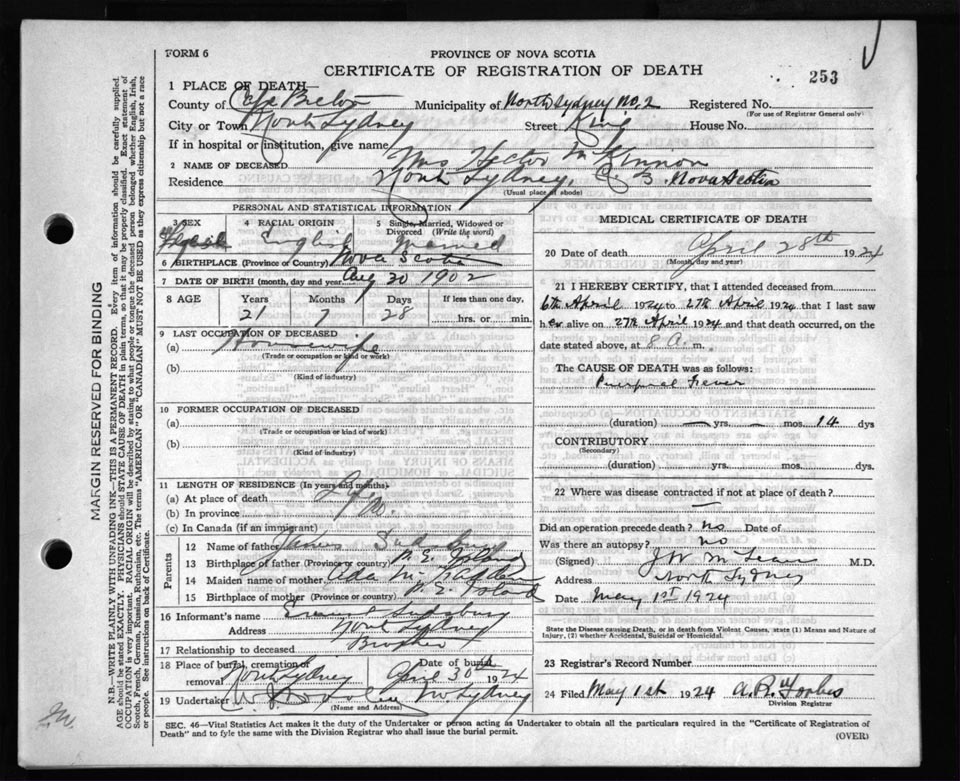 FORM 6
PROVINCE OF NOVA SCOTIA
CERTIFICATE OF REGISTRATION OF DEATH
253
1 PLACE OF DEATH—
County of Cape Breton Municipality of North Sydney No. 2 Registered No.
(For use of Registrar General only)
City or Town North Sydney Street King House No.
If in hospital or institution, give name
2 NAME OF DECEASED Mrs Hector McKinnon
Residence North Sydney C. B. Nova Scotia
(Usual place of abode)
PERSONAL AND STATISTICAL INFORMATION
3 SEX 4 RACIAL ORIGIN 5 Single, Married, Widowed or Divorced (Write the word)
English Married
6 BIRTHPLACE (Province or Country) Nova Scotia
7 DATE OF BIRTH (month, day and year) Aug 30 1902
8 AGE Years Months Days If less than one day,
21 7 28 hrs. or min.
9 LAST OCCUPATION OF DECEASED
(a) Housewife
(Trade or occupation or kind or work)
(b)
(Kind of industry)
10 FORMER OCCUPATION OF DECEASED
(a)
(Trade or occupation or kind of work)
(b)
(Kind of industry)
11 LENGTH OF RESIDENCE (In years and months)
(a) At place of death Life
(b) In province Do.
(c) In Canada (if an immigrant)
Parents
12 Name of father James Sudsbury
13 Birthplace of father (Province or country) P. E. Island
14 Maiden name of mother Ada
15 Birthplace of mother (Province or country) P. E. Island
16 Informant's name Sudsbury
Address North Sydney
17 Relationship to deceased Brother
18 Place of burial, cremation or removal North Sydney Date of burial April 30th 1924
19 Undertaker N. Sydney
(Name and Address)
MEDICAL CERTIFICATE OF DEATH
20 Date of death April 28th 1924
(Month, day and year)
21 I HEREBY CERTIFY, that I attended deceased from
6th April 1924 to 27th April 1924 that I last saw
h er alive on 27th April 1924 and that death occurred, on
date stated above, at 8 A. m.
The CAUSE OF DEATH was as follows:
Puerperal Fever
(duration) — yrs. — mos. 14 dys
CONTRIBUTORY
(Secondary)
(duration) yrs. mos. dys.
22 Where was disease contracted if not at place of death?
—
Did an operation precede death? no Date of
Was there an autopsy? no
(Signed) J W McLean M.D.
Address North Sydney
Date May 1st 1924
State the Disease causing Death, or in death from Violent Causes, state (1) Means and Nature of
Injury, (2) whether Accidental, Suicidal or Homicidal.
23 Registrar's Record Number
24 Filed May 1st 1924 A. R. Forbes
Division Registrar
SEC. 46—Vital Statistics Act makes it the duty of the Undertaker or person acting as Undertaker to obtain all the particulars required in the "Certificate of Registration of
Death" and to fyle the same with the Division Registrar who shall issue the burial permit.
(OVER)
MARGIN RESERVED FOR BINDING
N.B.—WRITE PLAINLY WITH UNFADING INK—THIS IS A PERMANENT RECORD. Every item of information should be carefully supplied.
AGE should be stated EXACTLY. PHYSICIANS should STATE CAUSE OF DEATH in plain terms, so that it may be properly classified. Exact statement of
OCCUPATION is very important. RACIAL ORIGIN will be described by stating to what people or tongue the deceased person belonged whether English, Irish,
Scotch, French, German, Russian, Ruthenian, etc. The terms "AMERICAN" or "CANADIAN" MUST NOT BE USED as they express citizenship but not a race
or people. See instructions on back of Certificate.